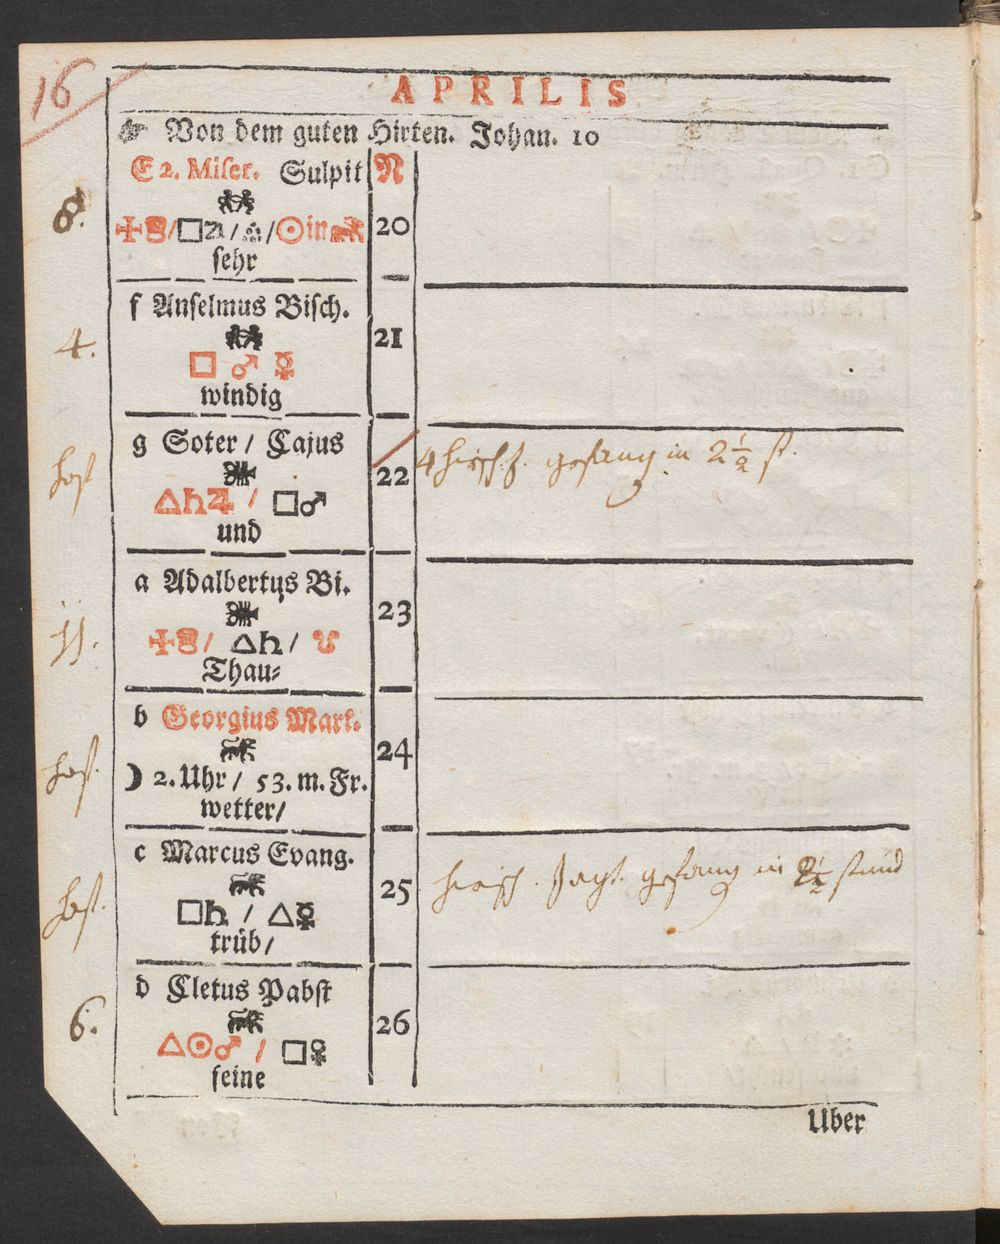 16
APRILIS
☞ Von dem guten Hirten. Johan. 10
E 2. Miser. Sulpit N
8.
/□♃/ /☉in 20
sehr
f Anselmus Bisch.
4. 21
□ ♂ ☿
windig
g Soter / Cajus
22 in 2 1/2 st.
△♄♃ / □♂
und
a Adalbertus Bi.
23
11. / △♄ / ♉
Thau⸗
b Georgius Mart.
24
☽ 2. Uhr / 53. m. Fr.
wetter/
c Marcus Evang.
25 in 2 1/2 stund
□♄ / △☿
trüb/
d Cletus Pabst
6. 26
△☉♂ / □♀
feine
Uber